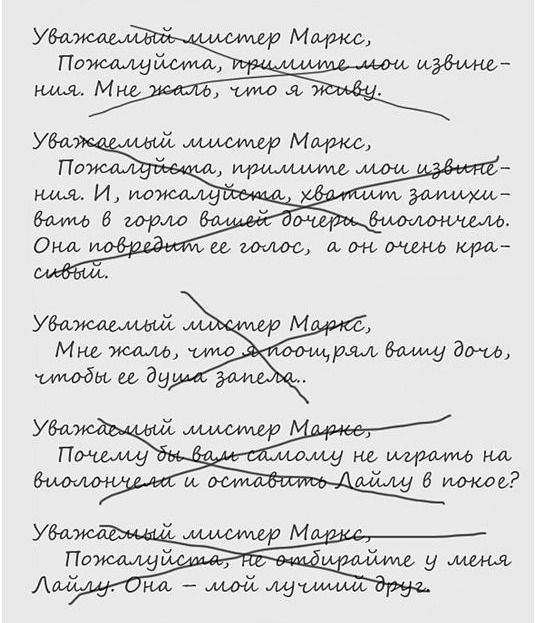 Уважаемый мистер Маркс,
Пожалуйста, примите мои извине-
ния. Мне жаль, что я живу.
Уважаемый мистер Маркс,
Пожалуйста, примите мои извине-
ния. И, пожалуйста, хватит запихи-
вать в горло вашей дочери виолончель.
Она повредит ее голос, а он очень кра-
сивый.
Уважаемый мистер Маркс,
Мне жаль, что я поощрял вашу дочь,
чтобы ее душа запела..
Уважаемый мистер Маркс,
Почему бы вам самому не играть на
виолончели и оставить Лайлу в покое?
Уважаемый мистер Маркс,
Пожалуйста, не отбирайте у меня
Лайлу. Она – мой лучший друг.